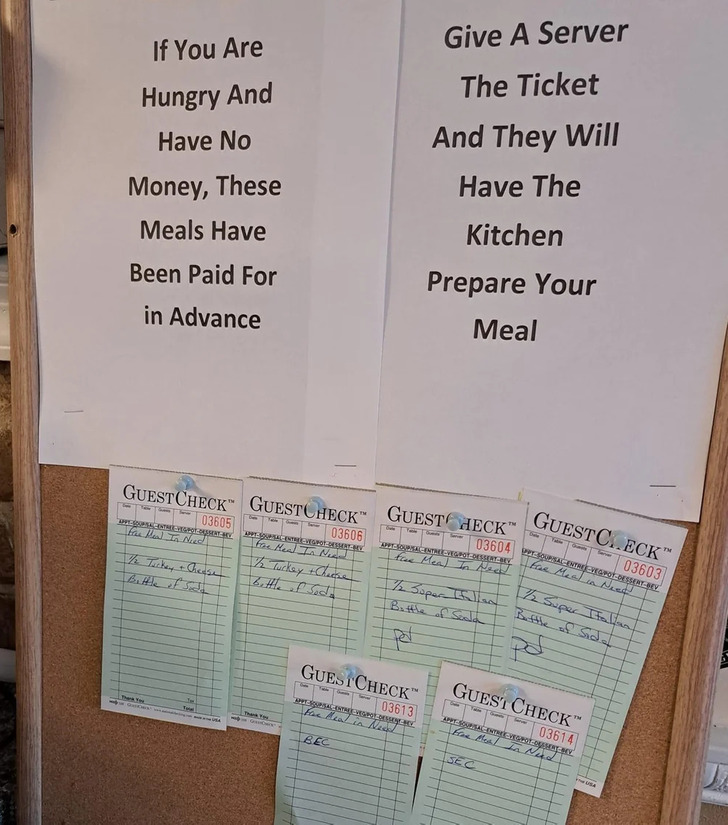 If You Are
Hungry And
Have No
Money, These
Meals Have
Been Paid For
in Advance
Give A Server
The Ticket
And They Will
Have The
Kitchen
Prepare Your
Meal
GUESTCHECK™
Date Table Guests Server
03605
APPT-SOUP/SAL-ENTREE-VEG/POT-DESSERT-BEV
Free Meal In Need
1/2 Turkey + Cheese
Bottle of Soda
Thank You
Tax
Total
GUESTCHECK™
Date Table Guests Server
03606
APPT-SOUP/SAL-ENTREE-VEG/POT-DESSERT-BEV
Free Meal In Need
1/2 Turkey + Cheese
Bottle of Soda
Thank You
GUESTCHECK™
Date Table Guests Server
03604
APPT-SOUP/SAL-ENTREE-VEG/POT-DESSERT-BEV
Free Meal In Need
1/2 Super Italian
Bottle of Soda
pd
GUESTCHECK™
Date Table Guests Server
03603
APPT-SOUP/SAL-ENTREE-VEG/POT-DESSERT-BEV
Free Meal in Need
1/2 Super Italian
Bottle of Soda
pd
GUESTCHECK™
Date Table Guests Server
03613
APPT-SOUP/SAL-ENTREE-VEG/POT-DESSERT-BEV
Free Meal in Need
BEC
GUESTCHECK™
Date Table Guests Server
03614
APPT-SOUP/SAL-ENTREE-VEG/POT-DESSERT-BEV
Free Meal In Need
SEC